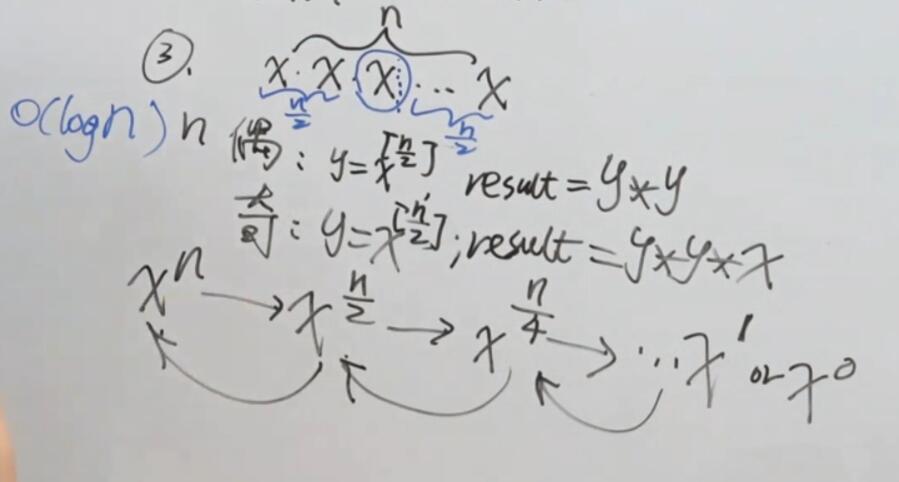 n
③. x · x · x · ... x
n/2 n/2
O(logn) n 偶: y=x^[n/2] result=y*y
奇: y=x^[n/2]; result=y*y*x
x^n → x^(n/2) → x^(n/4) → ... x^1 or x^0